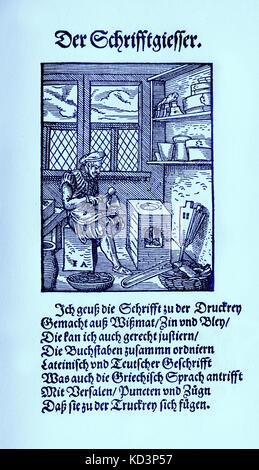 Der Schrifftgiesser.
Ich geuß die Schrifft zu der Druckrey
Gemacht auß Wißmat/Zin vnd Bley/
Die kan ich auch gerecht justiern/
Die Buchstaben zusammn ordniern
Lateinisch vnd Teutscher Geschrifft
Was auch die Griechisch Sprach antrifft
Mit Versalen/Puncten vnd Zügn
Daß sie zu der Truckrey sich fügen.
alamy
KD3P57